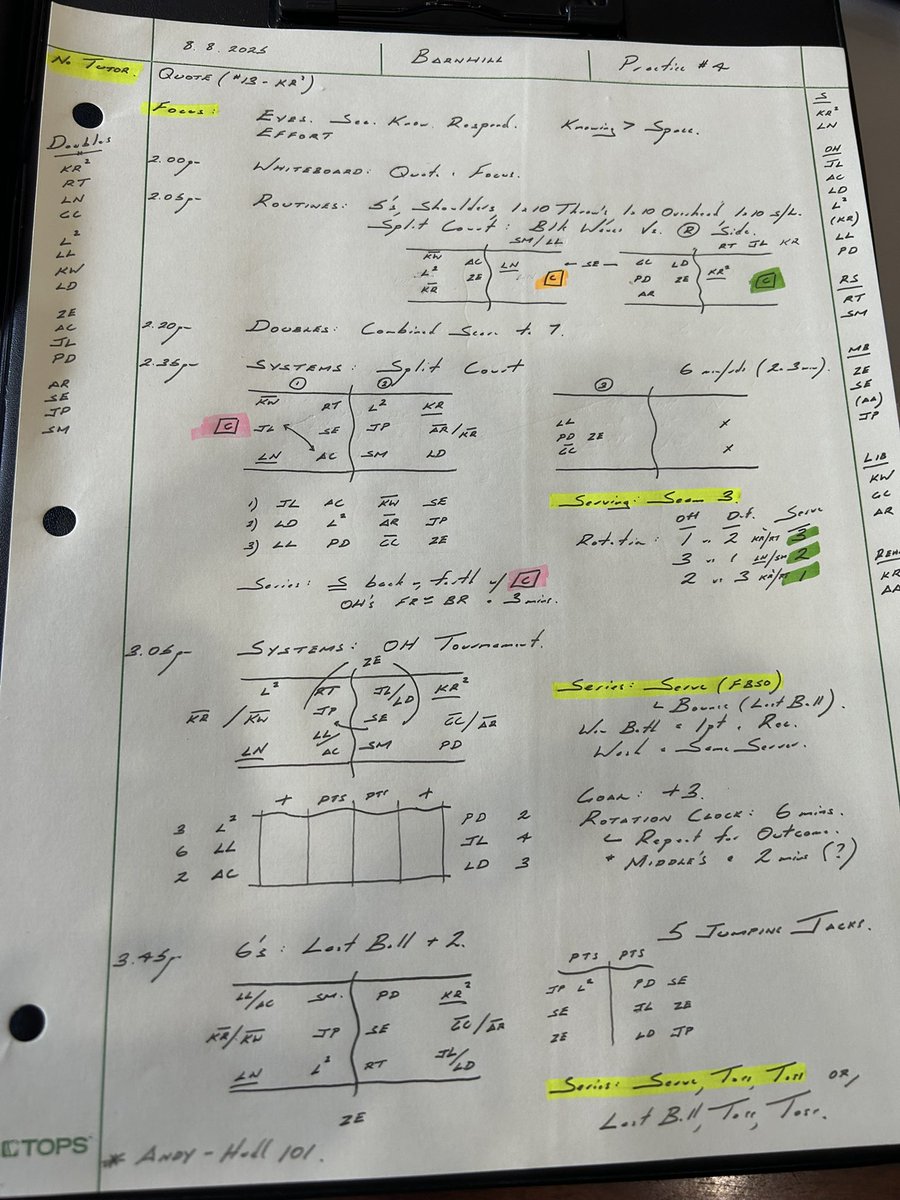 8.8.2025 BARNHILL Practice #4
No TUTOR.
QUOTE (#13 - KR²)
Focus: EYES. See. Know. Respond. Knowing > Space.
EFFORT
2.00pm WHITEBOARD: Quote + Focus.
2.05pm ROUTINES: 5's, Shoulders, 1x10 Throws, 1x10 Overhead, 1x10 S/L.
Split Court: Blk Waves Vs. R Side.
SM/LL RT JL KR
K̅W̅ AC LN ← SE → GC LD
L² ZE C PD ZE KR² C
K̅R̅ AR
2.20pm DOUBLES: Combined Score to 7.
2.35pm SYSTEMS: Split Court 6 min/rds (2x3min).
① ② ③
K̅W̅ RT L² KR
C JL SE JP A̅R̅/K̅R̅
LN AC SM LD
LL X
PD ZE
G̅C̅ X
1) JL AC K̅W̅ SE
2) LD L² A̅R̅ JP
3) LL PD G̅C̅ ZE
Series: S back + forth w/ C
OH's FR = BR • 3 mins.
Serving: Seam 3.
OH Def. Serve
Rotation: 1 vs 2 KR/RT 3
3 vs 1 LN/SM 2
2 vs 3 KR/RT 1
3.05pm SYSTEMS: OH Tournament.
ZE
L² RT JL/LD KR²
K̅R̅/K̅W̅ JP SE G̅C̅/A̅R̅
LN LL/AC SM PD
Series: Serve (FBSO)
↳ Bounce (Last Ball).
Win Both = 1pt + Rec.
Wash = Same Server.
+ PTS PTS +
3 L² PD 2
6 LL JL 4
2 AC LD 3
GOAL: +3.
ROTATION CLOCK: 6 mins.
↳ Repeat for Outcome.
* MIDDLE'S • 2 mins (?)
3.45p 6's: Last Ball +2. 5 JUMPING JACKS.
LL/AC SM. PD KR²
K̅R̅/K̅W̅ JP SE G̅C̅/A̅R̅
LN L² RT JL/LD
ZE
PTS PTS
JP L² PD SE
SE JL ZE
ZE LD JP
Series: Serve, Toss, Toss OR,
Last Ball, Toss, Toss.
* ANDY - Hall 101.
TOPS
Doubles
KR²
RT
LN
GC
L²
LL
KW
LD
ZE
AC
JL
PD
AR
SE
JP
SM
S
KR²
LN
OH
JL
AC
LD
L²
(KR)
LL
PD
RS
RT
SM
MB
ZE
SE
(AA)
JP
LIB
KW
GC
AR
REH
KR
AA